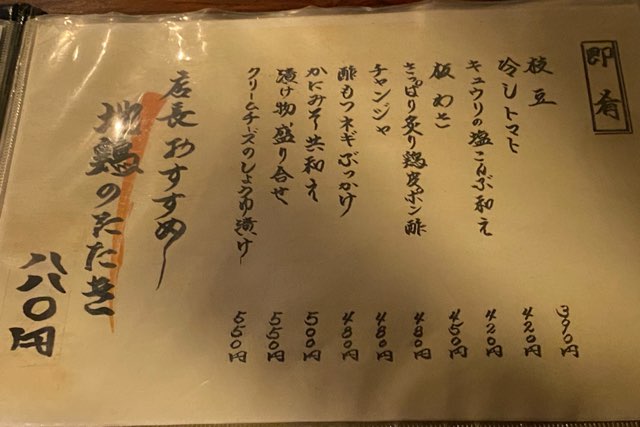 即肴
枝豆 390円
冷しトマト 420円
キュウリの塩こんぶ和え 420円
板わさ 450円
さっぱり炙り鶏皮ポン酢 480円
チャンジャ 480円
酢もつネギぶっかけ 480円
かにみそ共和え 500円
漬け物盛り合せ 550円
クリームチーズのしょうゆ漬け 550円
店長おすすめ〜
地鶏のたたき
八八〇円